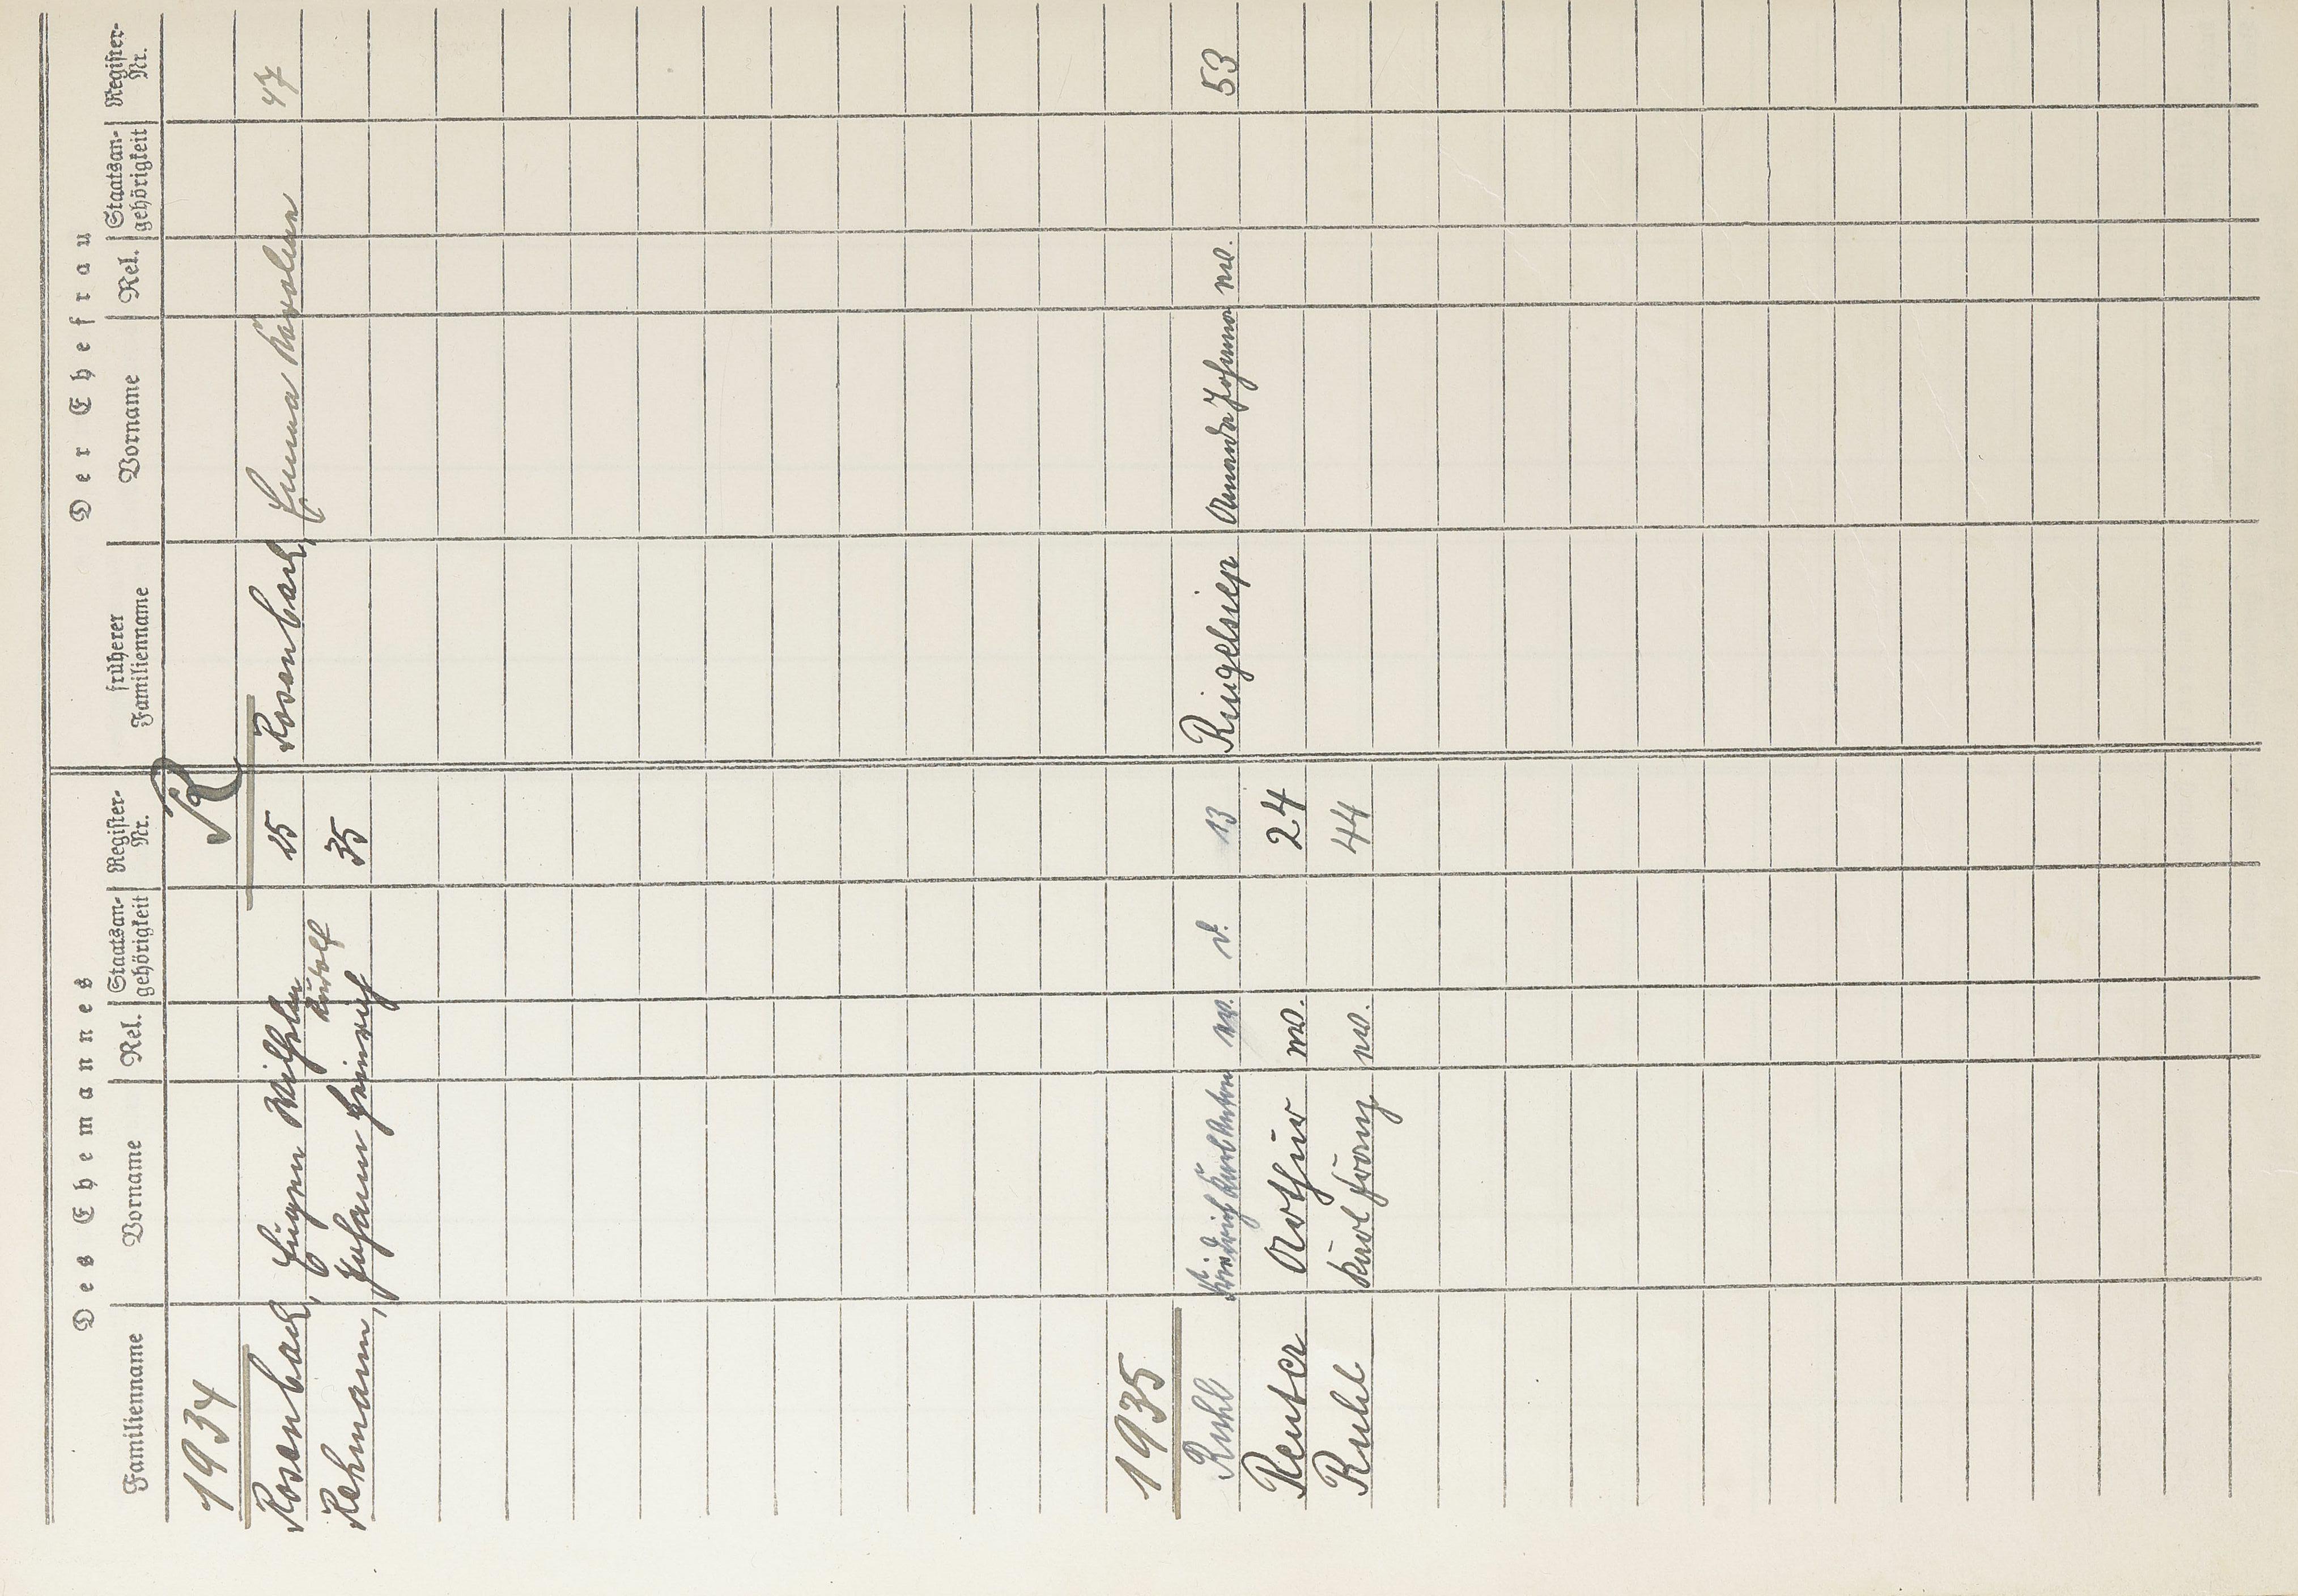 Des Ehemannes Der Ehefrau
Familienname Vorname Rel. Staatsan-gehörigkeit Register-Nr. früherer Familienname Vorname Rel. Staatsan-gehörigkeit Register-Nr.
1934 R
Rosenbach, Eugen Wilhelm 15 Rosenbach, Emma Karoline 47
Rudolf
Rehmann, Johann Heinrich 35
1935
Ruhl Friedrich Karl Anton ev. d. 13 Ringelsiep Amanda Johanna ev. 53
Reuter Arthur ev. 24
Ruhl Karl Franz ev. 44